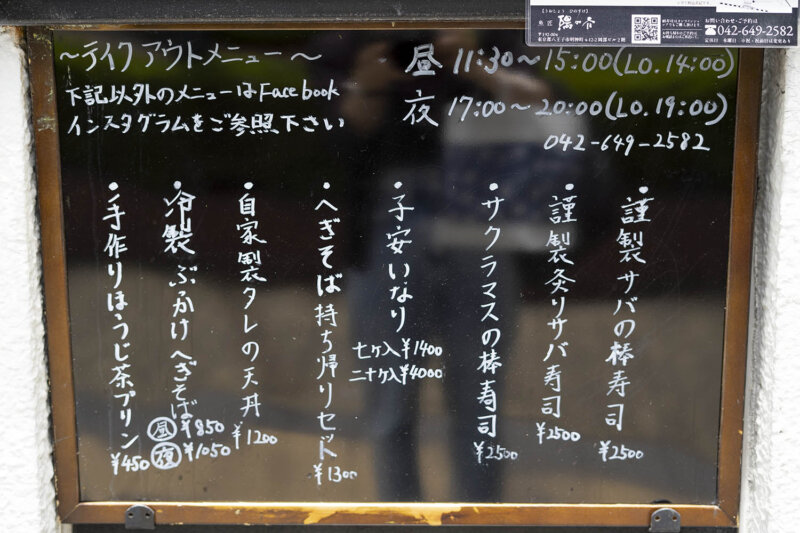 魚匠 隠の音
お問い合わせ・ご予約は
☎042-649-2582
～テイクアウトメニュー～
下記以外のメニューはFacebook
インスタグラムをご参照下さい
昼 11:30～15:00(LO.14:00)
夜 17:00～20:00(LO.19:00)
042-649-2582
・謹製サバの棒寿司
¥2500
・謹製炙りサバ寿司
¥2500
・サクラマスの棒寿司
¥2500
・子安いなり
七ケ入¥1400
二十ケ入¥4000
・へぎそば持ち帰りセット
¥1300
・自家製タレの天丼
¥1200
・冷製ぶっかけへぎそば
昼¥850
夜¥1050
・手作りほうじ茶プリン
¥450